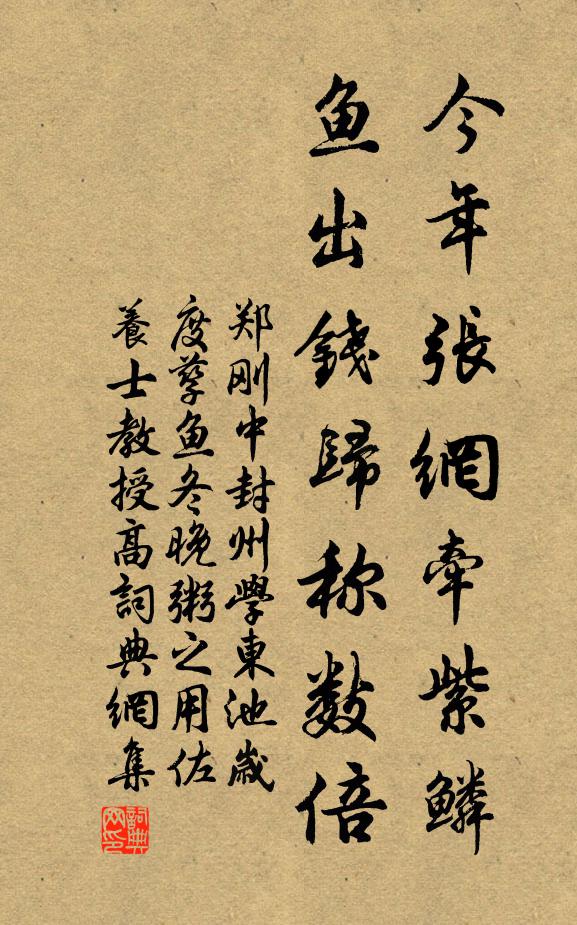 今年張網牽紫鳞
鱼出錢歸称数倍
郑刚中封州學東池歲
度孳鱼冬晚粥之用佐
養士教授高詞典網集
詞典網印